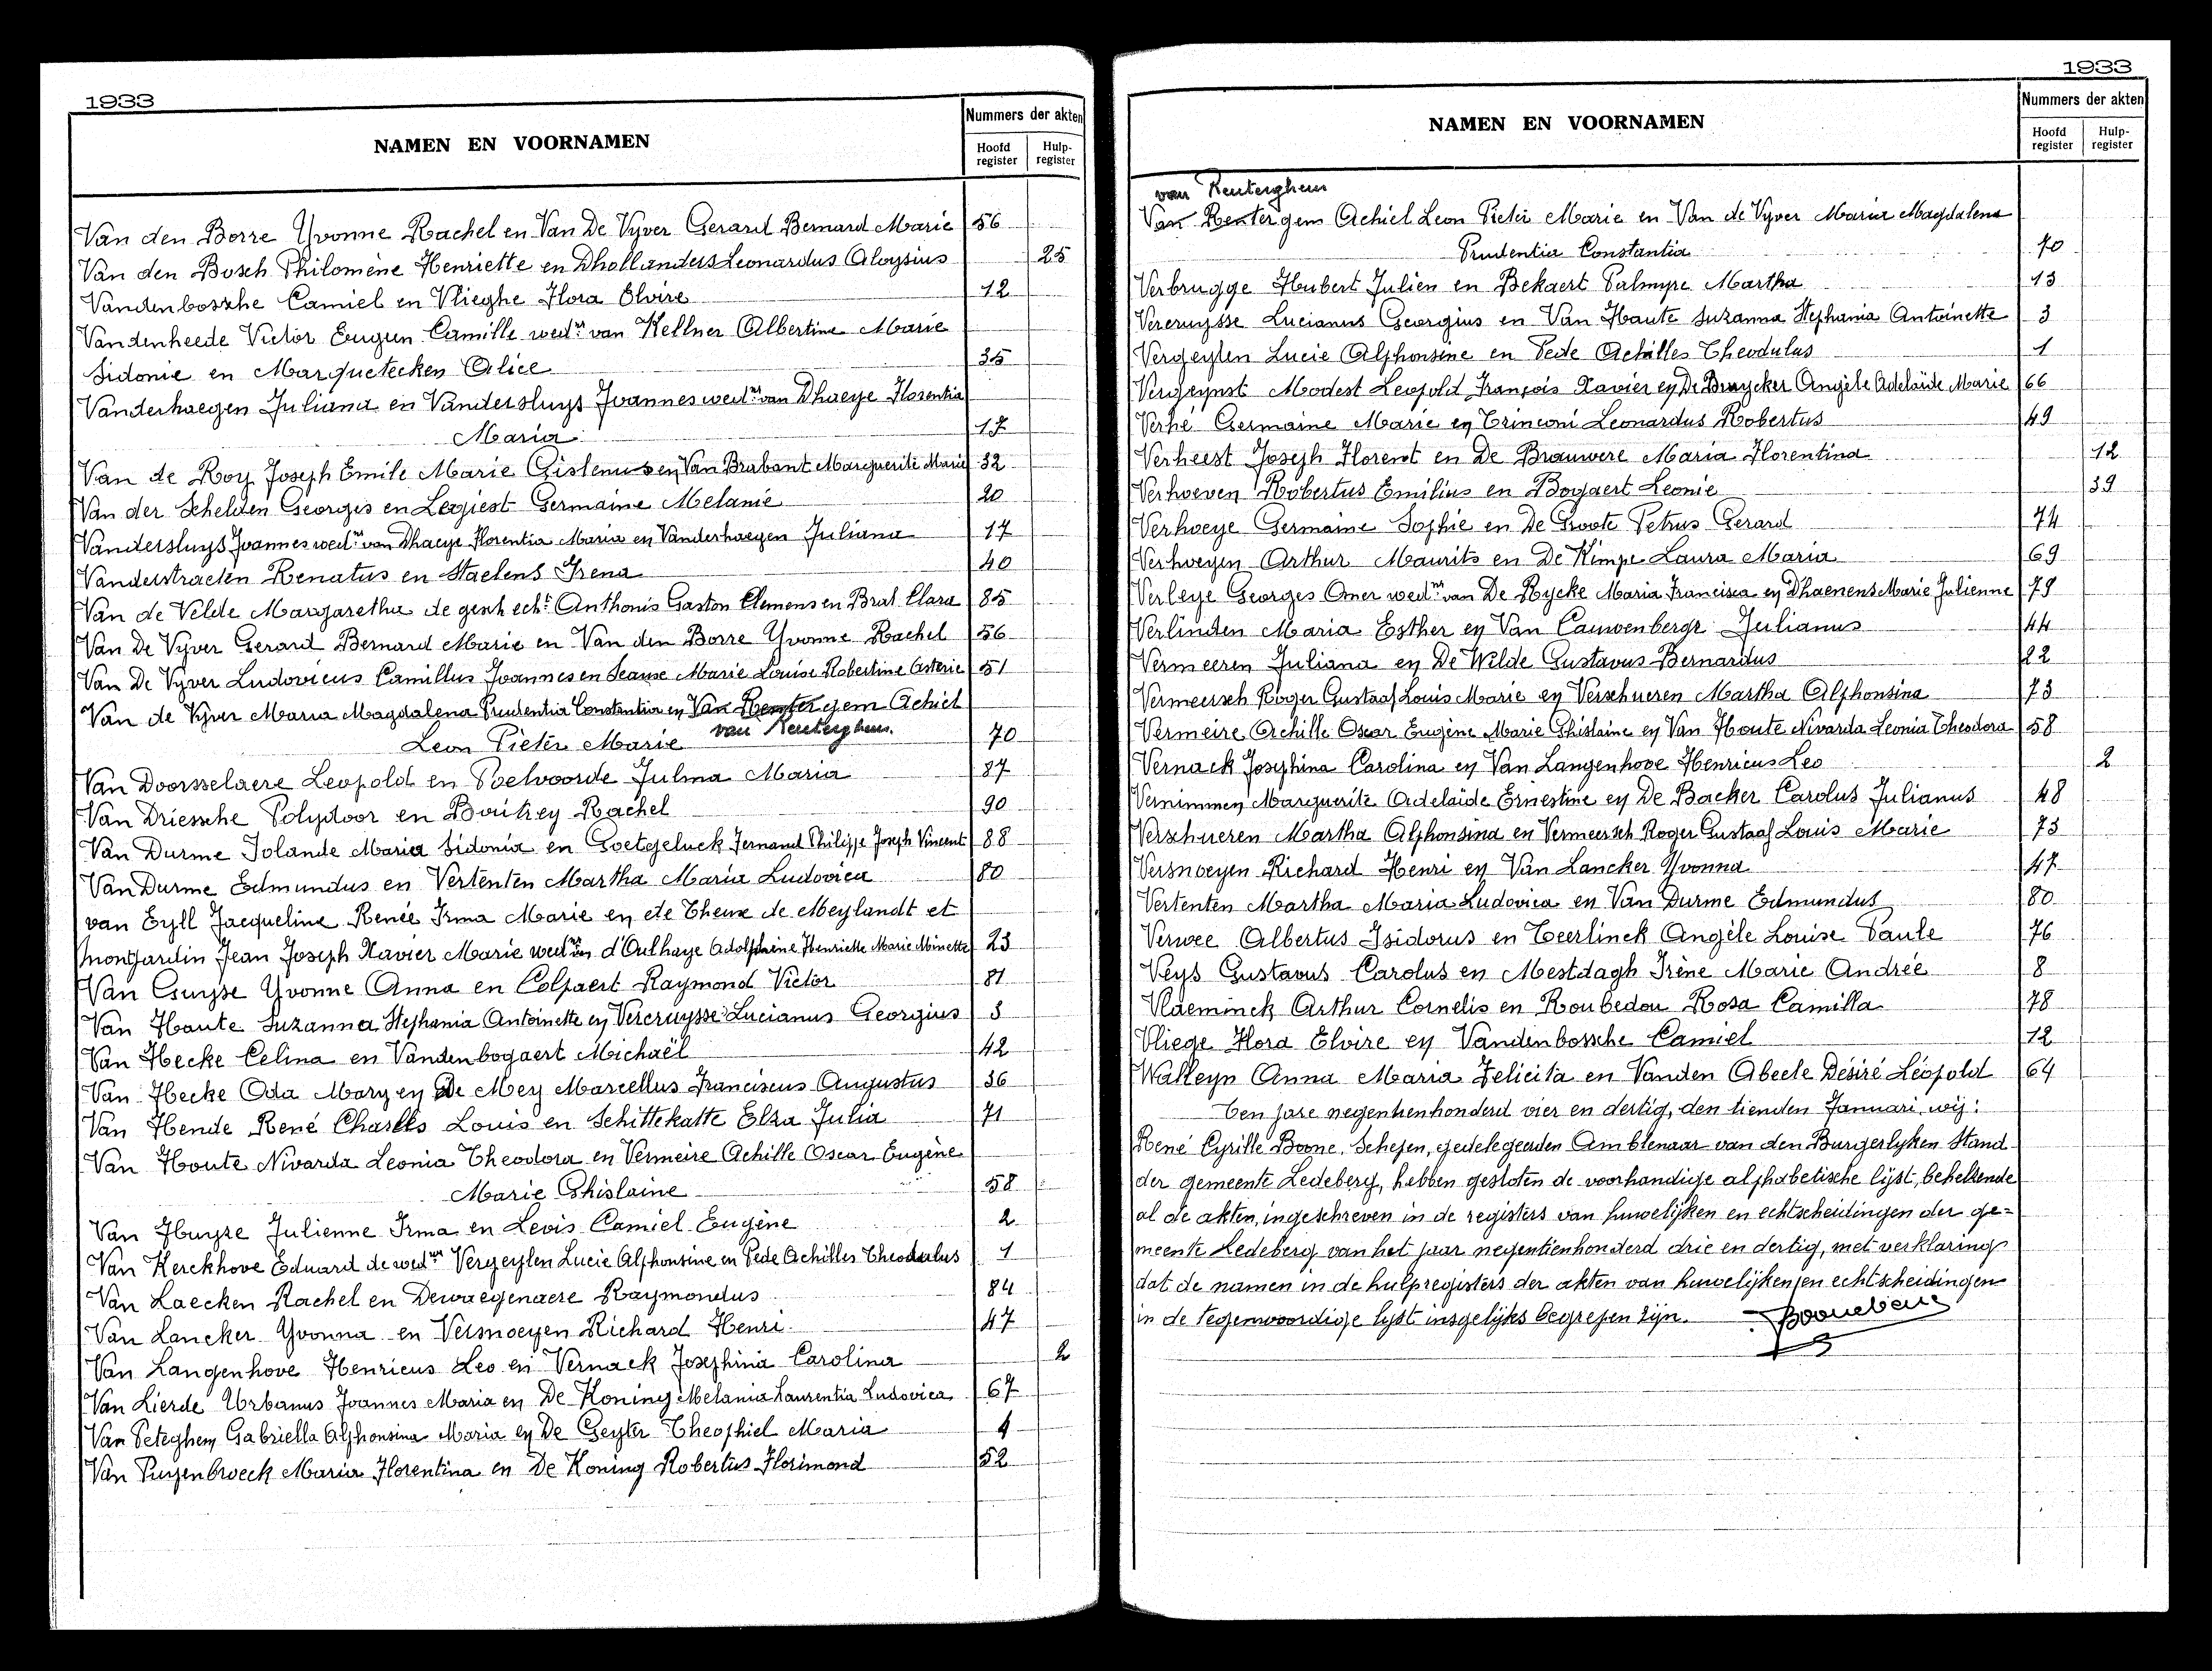 1933
NAMEN EN VOORNAMEN
Nummers der akten
Hoofd register
Hulp-register
Van den Borre Yvonne Rachel en Van De Vyver Gerard Bernard Marie 56
Van den Bosch Philomène Henriette en Dhollanders Leonardus Aloysius 25
Vandenbossche Camiel en Vlieghe Flora Elvire 12
Vandenheede Victor Eugeen Camille wedr van Kellner Albertine Marie
Sidonie en Marquetecken Alice 35
Vanderhaegen Juliana en Vandersluys Joannes wednr van Dhaeye Florentia
Maria 17
Van de Roy Joseph Emile Marie Gislenus en Van Brabant Marguerite Marie 32
Van der Schelden Georges en Legiest Germaine Melanie 20
Vandersluys Joannes wedr van Dhaeye Florentia Maria en Vanderhaegen Juliana 17
Vanderstraeten Renatus en Staelens Irena 40
Van de Velde Margaretha de gesch echt Anthonis Gaston Clemens en Brat Clara 85
Van De Vyver Gerard Bernard Marie en Van den Borre Yvonne Rachel 56
Van De Vyver Ludovicus Camillus Joannes en Seause Marie Louise Robertine Asterie 51
Van de Vyver Maria Magdalena Prudentia Constantia en Van Rentergem Achiel
Leon Pieter Marie van Renterghem. 70
Van Doorsselaere Leopold en Poelvoorde Julma Maria 87
Van Driessche Polydoor en Boutrey Rachel 90
Van Durme Iolande Maria Sidonia en Goetgeluck Fernand Philippe Joseph Vincent 88
Van Durme Edmundus en Vertenten Martha Maria Ludovica 80
van Eyll Jacqueline Renée Irma Marie en de Theux de Meylandt et
Montjardin Jean Joseph Xavier Marie wednr van d'Oulhaye Adolphine Henriette Marie Minette 23
Van Guyse Yvonne Anna en Colpaert Raymond Victor 81
Van Haute Suzanna Stephania Antoinette en Vercruysse Lucianus Georgius 3
Van Hecke Celina en Vandenbogaert Michaël 42
Van Hecke Oda Mary en De Mey Marcellus Franciscus Augustus 36
Van Hende René Charles Louis en Schittekatte Elza Julia 71
Van Houte Nivarda Leonia Theodora en Vermeire Achille Oscar Eugène
Marie Ghislaine 58
Van Huyse Julienne Irma en Levis Camiel Eugène 2
Van Kerckhove Eduard de wedwe Vergeylen Lucie Alphonsine en Pede Achilles Theodulus 1
Van Laecken Rachel en Dewaegenaere Raymondus 84
Van Lancker Yvonna en Versnoeyen Richard Henri 47
Van Langenhove Henricus Leo en Vernack Josephina Carolina 2
Van Lierde Urbanus Joannes Maria en De Koning Melania Laurentia Ludovica 67
Van Peteghem Gabriella Alphonsina Maria en De Geyter Theophiel Maria 4
Van Puyenbroeck Maria Florentina en De Koning Robertus Florimond 52
1933
NAMEN EN VOORNAMEN
Nummers der akten
Hoofd register
Hulp-register
van Renterghem
Van Rentergem Achiel Leon Pieter Marie en Van de Vyver Maria Magdalena
Prudentia Constantia 70
Verbrugge Hubert Julien en Bekaert Palmyre Martha 13
Vercruysse Lucianus Georgius en Van Haute Suzanna Stephania Antoinette 3
Vergeylen Lucie Alphonsine en Pede Achilles Theodulus 1
Vergeynst Modest Leopold François Xavier en De Bruycker Angèle Adelaïde Marie 66
Verhé Germaine Marie en Trinconi Leonardus Robertus 49
Verheest Joseph Florent en De Brauwere Maria Florentina 12
Verhoeven Robertus Emilius en Bogaert Leonie 39
Verhoeye Germaine Sophie en De Groote Petrus Gerard 74
Verhoeyen Arthur Maurits en De Kimpe Laura Maria 69
Verleye Georges Omer wednr van De Rycke Maria Francisca en Dhaenens Marie Julienne 79
Verlinden Maria Esther en Van Cauwenberge Julianus 44
Vermeeren Juliana en De Wilde Gustavus Bernardus 22
Vermeersch Roger Gustaaf Louis Marie en Verschueren Martha Alphonsina 73
Vermeire Achille Oscar Eugène Marie Ghislaine en Van Houte Nivarda Leonia Theodora 58
Vernack Josephina Carolina en Van Langenhove Henricus Leo 2
Vernimmen Marguerite Adelaïde Ernestine en De Backer Carolus Julianus 48
Verschueren Martha Alphonsina en Vermeersch Roger Gustaaf Louis Marie 73
Versnoeyen Richard Henri en Van Lancker Yvonna 47
Vertenten Martha Maria Ludovica en Van Durme Edmundus 80
Verwee Albertus Isidorus en Teerlinck Angèle Louise Paule 76
Veys Gustavus Carolus en Mestdagh Irène Marie Andrée 8
Vlaeminck Arthur Cornelis en Roubedou Rosa Camilla 78
Vliege Flora Elvire en Vandenbossche Camiel 12
Walleyn Anna Maria Felicita en Vanden Abeele Désiré Léopold 64
Ten jare negentienhonderd vier en dertig, den tienden Januari, wij:
René Cyrille Boone, Schepen, gedelegeerden Ambtenaar van den Burgerlyken Stand
der gemeente Ledeberg, hebben gesloten de voorhandige alphabetische lijst, behelzende
al de akten, ingeschreven in de registers van huwelijken en echtscheidingen der ge=
meente Ledeberg van het jaar negentienhonderd drie en dertig, met verklaring
dat de namen in de hulpregisters der akten van huwelijken en echtscheidingen
in de tegenwoordige lyst insgelijks begrepen zijn.